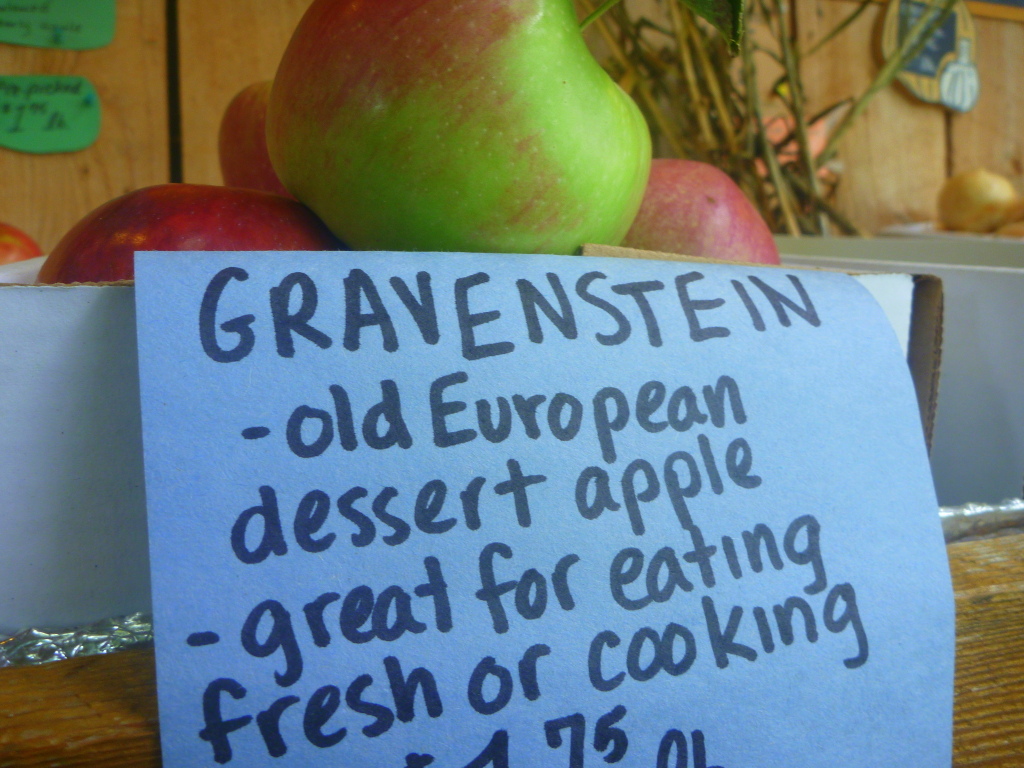 GRAVENSTEIN
- old European
dessert apple
- great for eating
fresh or cooking
$1.75 lb